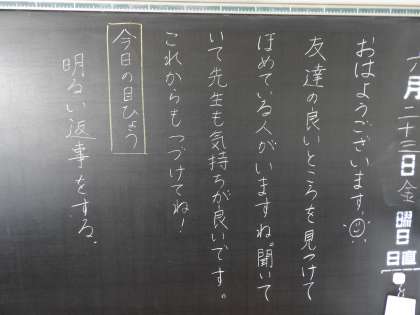 月二十三日金曜日
日直
おはようございます
友達の良いところを見つけて
ほめている人がいますね。聞いて
いて先生も気持ちが良いです。
これからもつづけてね!
今日の目ひょう
明るい返事をする。